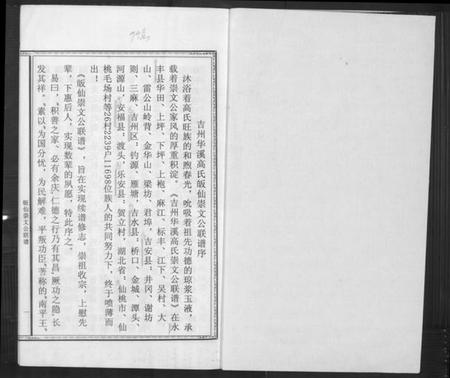 吉州华溪高氏皈仙崇文公联谱序
沐浴着高氏旺族的和煦春光，吮吸着祖先功德的琼浆玉液，承
载着崇文公家风的厚重积淀。《吉州华溪高氏崇文公联谱》在永
丰县华田、上坪、下坪、上袍、麻江、标丰、江下、吴村、大
山、雷公山岭背、金华山、梁坊、君埠，吉安县：井冈、谢坊
则、三麻，吉州区：钓源、雁塘，吉水县：桥口、金城、潭头、
河源山，安福县：渡头，乐安县：贺立村，湖北省：仙桃市、仙
桃毛场村等26村2239户11698位族人的共同努力下，终于喷薄而
出！
《皈仙崇文公联谱》，旨在实现续谱修志，崇祖收宗，上慰先
辈，下惠后人，实现数辈的夙愿，特此序之。
易曰，积善之家、必有余庆，仁德之行乃有其昌，厥功之隐，长
发其祥。素以为国分忧，为民解难，平叛功臣著称的，南平王、
皈仙崇文公联谱
一